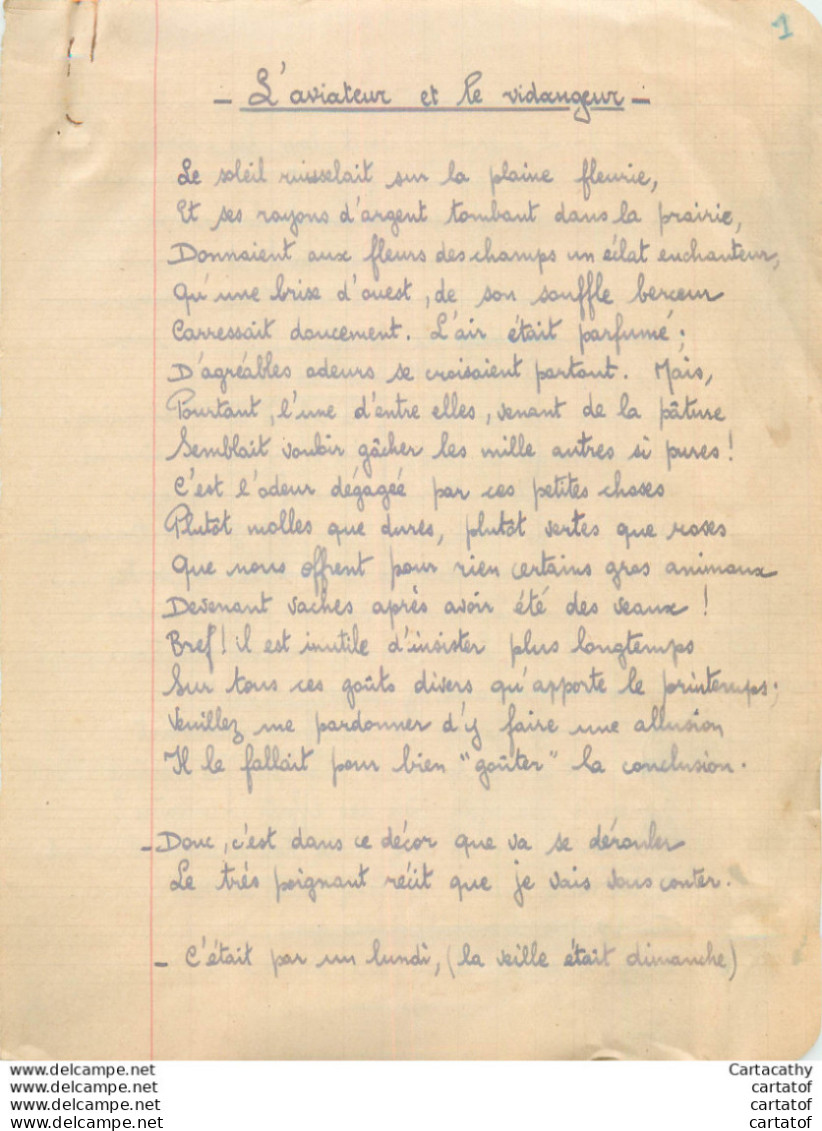 1
- L'aviateur et le vidangeur -
Le soleil ruisselait sur la plaine fleurie,
Et ses rayons d'argent tombant dans la prairie,
Donnaient aux fleurs des champs un éclat enchanteur,
Qu'une brise d'ouest, de son souffle berceur
Carressait doucement. L'air était parfumé;
D'agréables odeurs se croisaient partout. Mais,
Pourtant, l'une d'entre elles, venant de la pâture
Semblait vouloir gâcher les mille autres si pures!
C'est l'odeur dégagée par ces petites choses
Plutôt molles que dures, plutôt vertes que roses
Que nous offrent pour rien certains gros animaux
Devenant vaches après avoir été des veaux!
Bref! il est inutile d'insister plus longtemps
Sur tous ces goûts divers qu'apporte le printemps;
Veuillez me pardonner d'y faire une allusion
Il le fallait pour bien "goûter" la conclusion.
- Donc, c'est dans ce décor que va se dérouler
Le très poignant récit que je vais vous conter.
- C'était par un lundi, (la veille était dimanche)
www.delcampe.net
www.delcampe.net
www.delcampe.net
www.delcampe.net
Cartacathy
cartatof
cartatof
cartatof